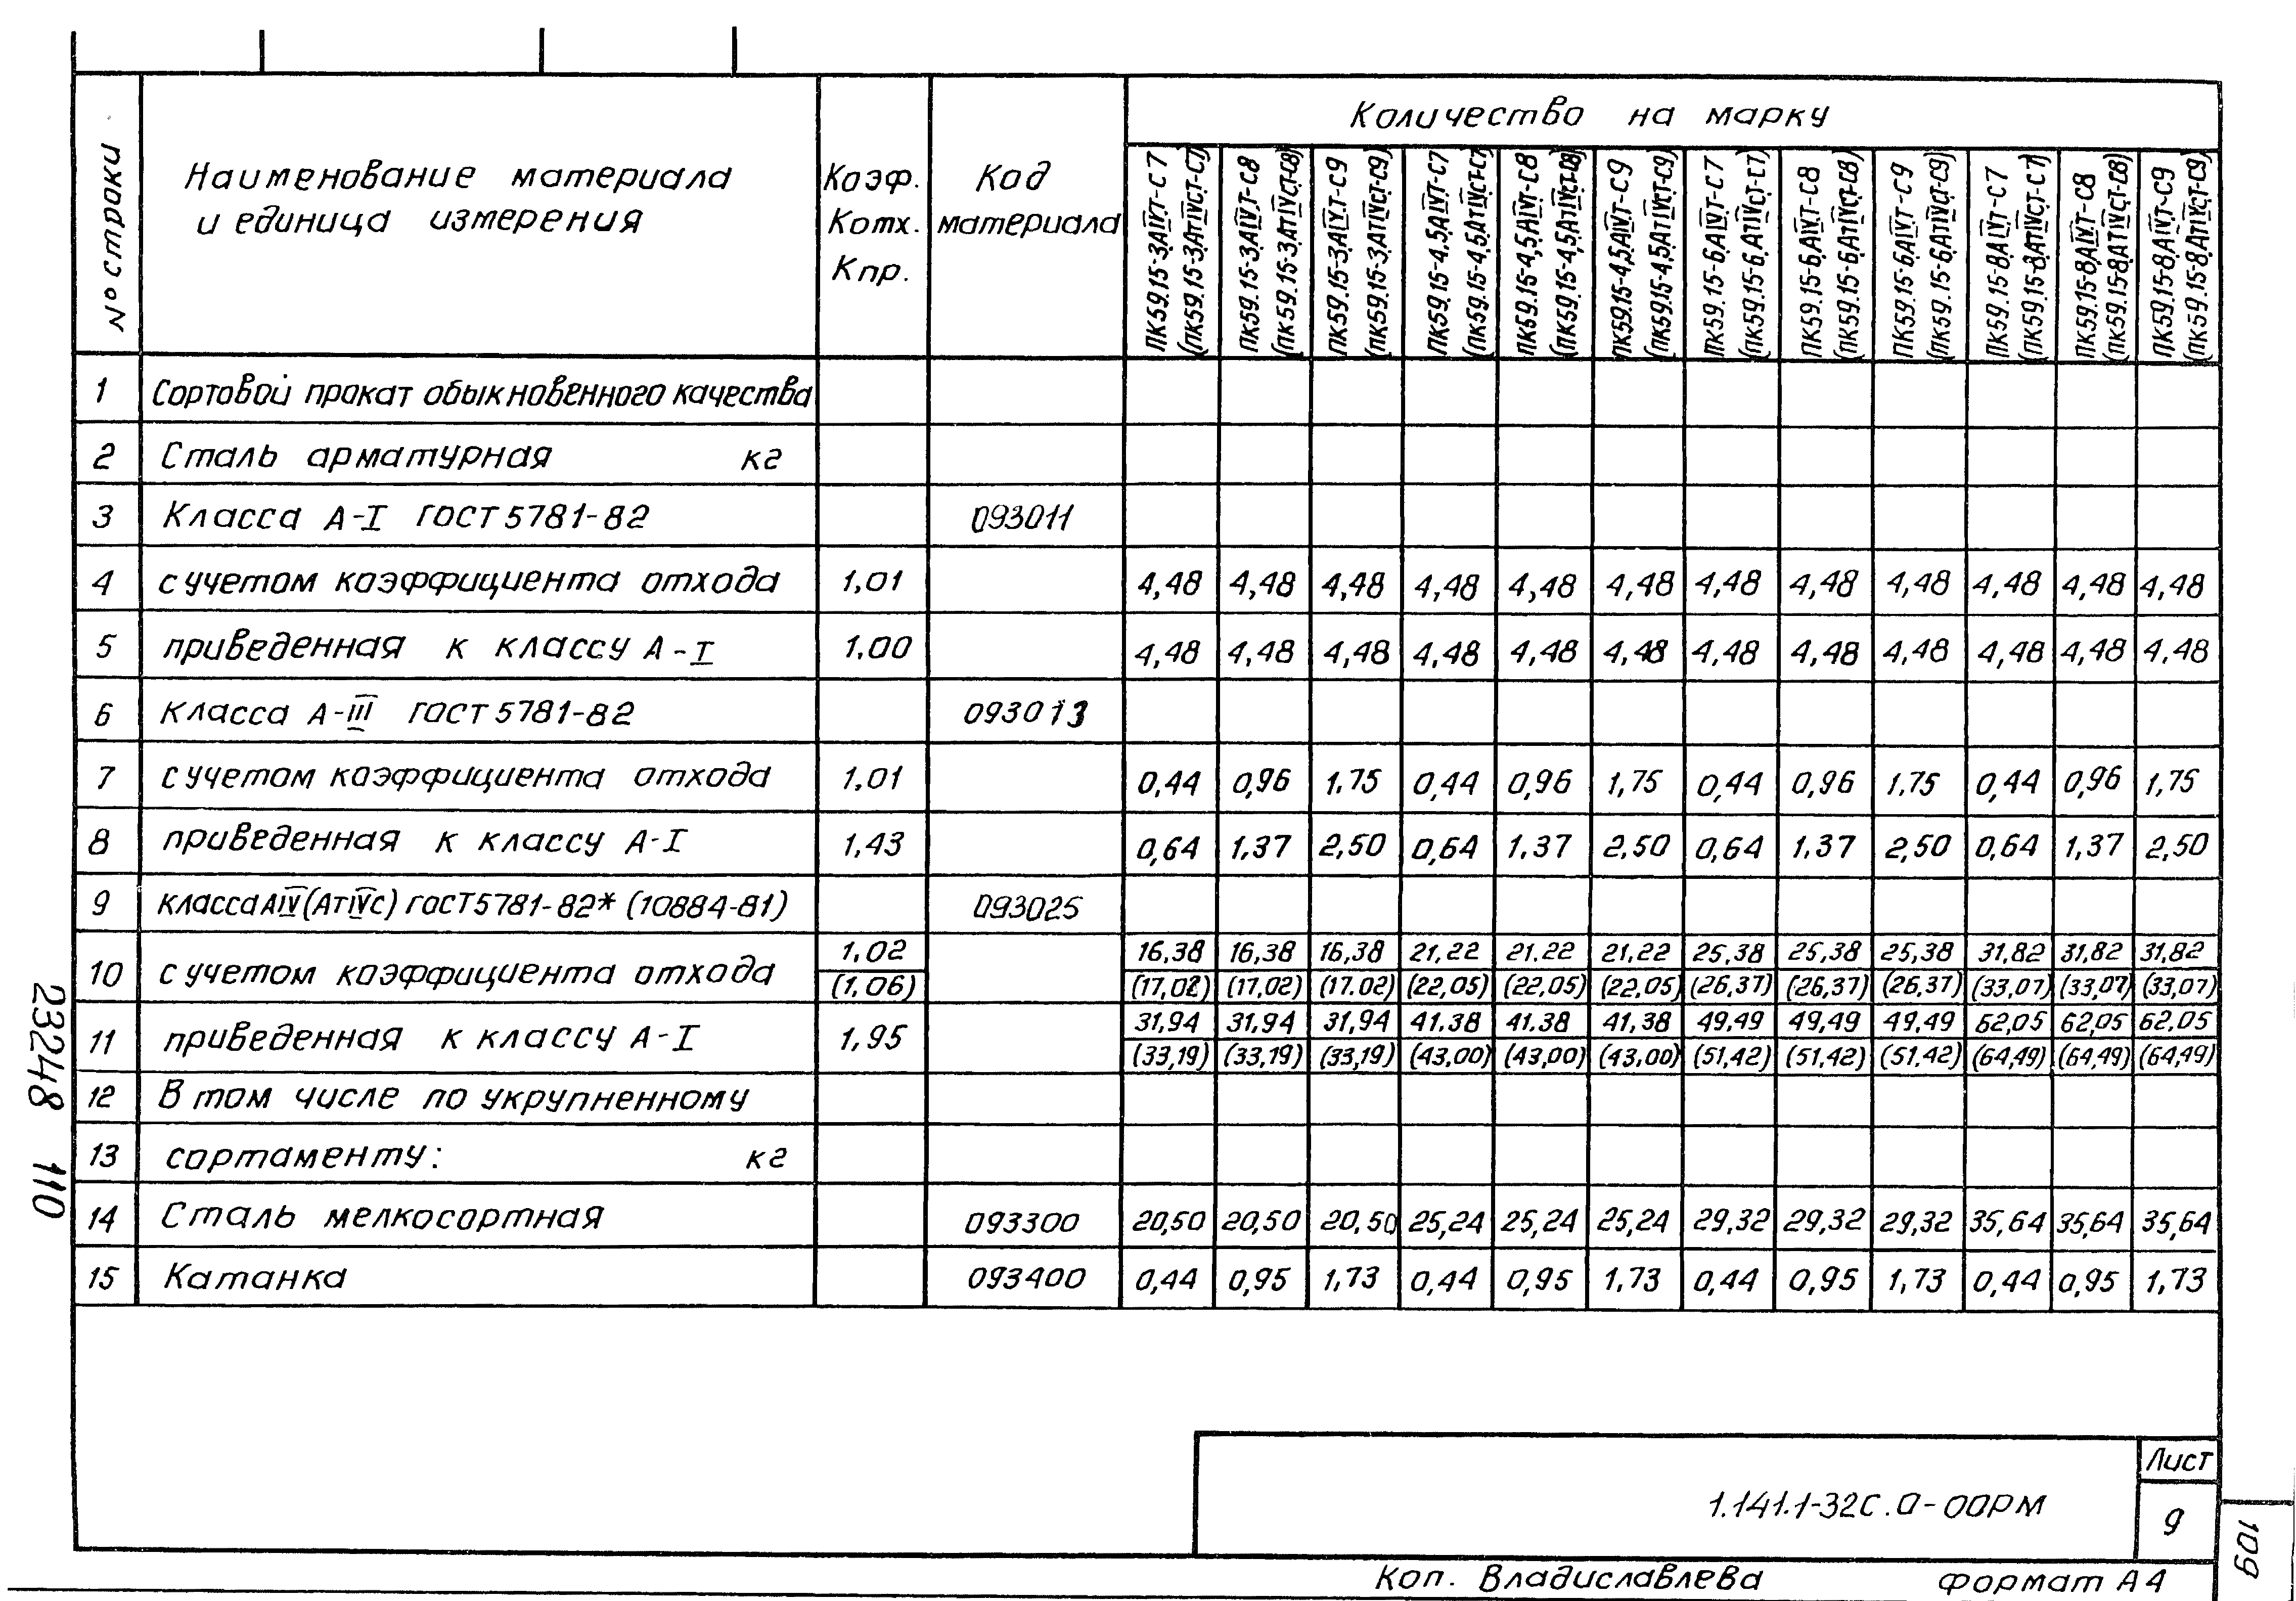 Количество на марку
№ строки
Наименование материала
и единица измерения
Коэф.
Котх.
Кпр.
Код
материала
ПК59.15-3АIVТ-С7
(ПК59.15-3АТIVСТ-С7)
ПК59.15-3АIVТ-С8
(ПК59.15-3АТIVСТ-С8)
ПК59.15-3АIVТ-С9
(ПК59.15-3АТIVСТ-С9)
ПК59.15-4,5АIVТ-С7
(ПК59.15-4,5АТIVСТ-С7)
ПК59.15-4,5АIVТ-С8
(ПК59.15-4,5АТIVСТ-С8)
ПК59.15-4,5АIVТ-С9
(ПК59.15-4,5АТIVСТ-С9)
ПК59.15-6АIVТ-С7
(ПК59.15-6АТIVСТ-С7)
ПК59.15-6АIVТ-С8
(ПК59.15-6АТIVСТ-С8)
ПК59.15-6АIVТ-С9
(ПК59.15-6АТIVСТ-С9)
ПК59.15-8АIVТ-С7
(ПК59.15-8АТIVСТ-С7)
ПК59.15-8АIVТ-С8
(ПК59.15-8АТIVСТ-С8)
ПК59.15-8АIVТ-С9
(ПК59.15-8АТIVСТ-С9)
1 Сортовой прокат обыкновенного качества
2 Сталь арматурная кг
3 Класса А-I ГОСТ 5781-82 093011
4 с учетом коэффициента отхода 1,01 4,48 4,48 4,48 4,48 4,48 4,48 4,48 4,48 4,48 4,48 4,48 4,48
5 приведенная к классу А-I 1.00 4,48 4,48 4,48 4,48 4,48 4,48 4,48 4,48 4,48 4,48 4,48 4.48
6 класса А-III ГОСТ 5781-82 093013
7 с учетом коэффициента отхода 1,01 0,44 0,96 1.75 0,44 0,96 1,75 0,44 0,96 1,75 0,44 0,96 1,75
8 приведенная к классу А-I 1,43 0,64 1,37 2,50 0,64 1.37 2,50 0,64 1,37 2,50 0,64 1,37 2,50
9 класса АIV (АТIVС) ГОСТ 5781-82* (10884-81) 093025
10 с учетом коэффициента отхода 1,02 16,38 16,38 16,38 21,22 21.22 21,22 25,38 25,38 25,38 31,82 31,82 31,82
(1,06) (17,02) (17,02) (17.02) (22,05) (22,05) (22,05) (26,37) (26,37) (26,37) (33,07) (33,07) (33,07)
11 приведенная к классу А-I 1,95 31,94 31,94 31,94 41.38 41.38 41,38 49,49 49,49 49,49 62,05 62,05 62,05
(33,19) (33,19) (33,19) (43,00) (43,00) (43,00) (51,42) (51,42) (51,42) (64,49) (64,49) (64,49)
12 В том числе по укрупненному
13 сортаменту: кг
14 Сталь мелкосортная 093300 20,50 20,50 20,50 25,24 25,24 25,24 29,32 29,32 29,32 35,64 35,64 35,64
15 Катанка 093400 0,44 0,95 1,73 0,44 0,95 1,73 0,44 0,95 1,73 0,44 0,95 1,73
23248 110
1.141.1-32С.0-00РМ
Лист
9
109
Коп. Владиславлева Формат А4